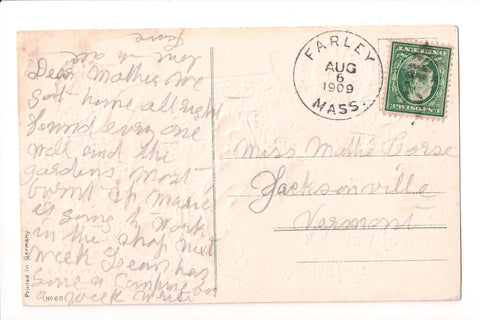 Dear Mattie We
got home all right
found every one
well and the
gardens most
burnt up Marie
is going to work
in the shop next
week Leon has
gone a camping for
a week write
FARLEY
AUG
6
1909
MASS.
Miss Mattie Corse
Jacksonville
Vermont
Printed in Germany